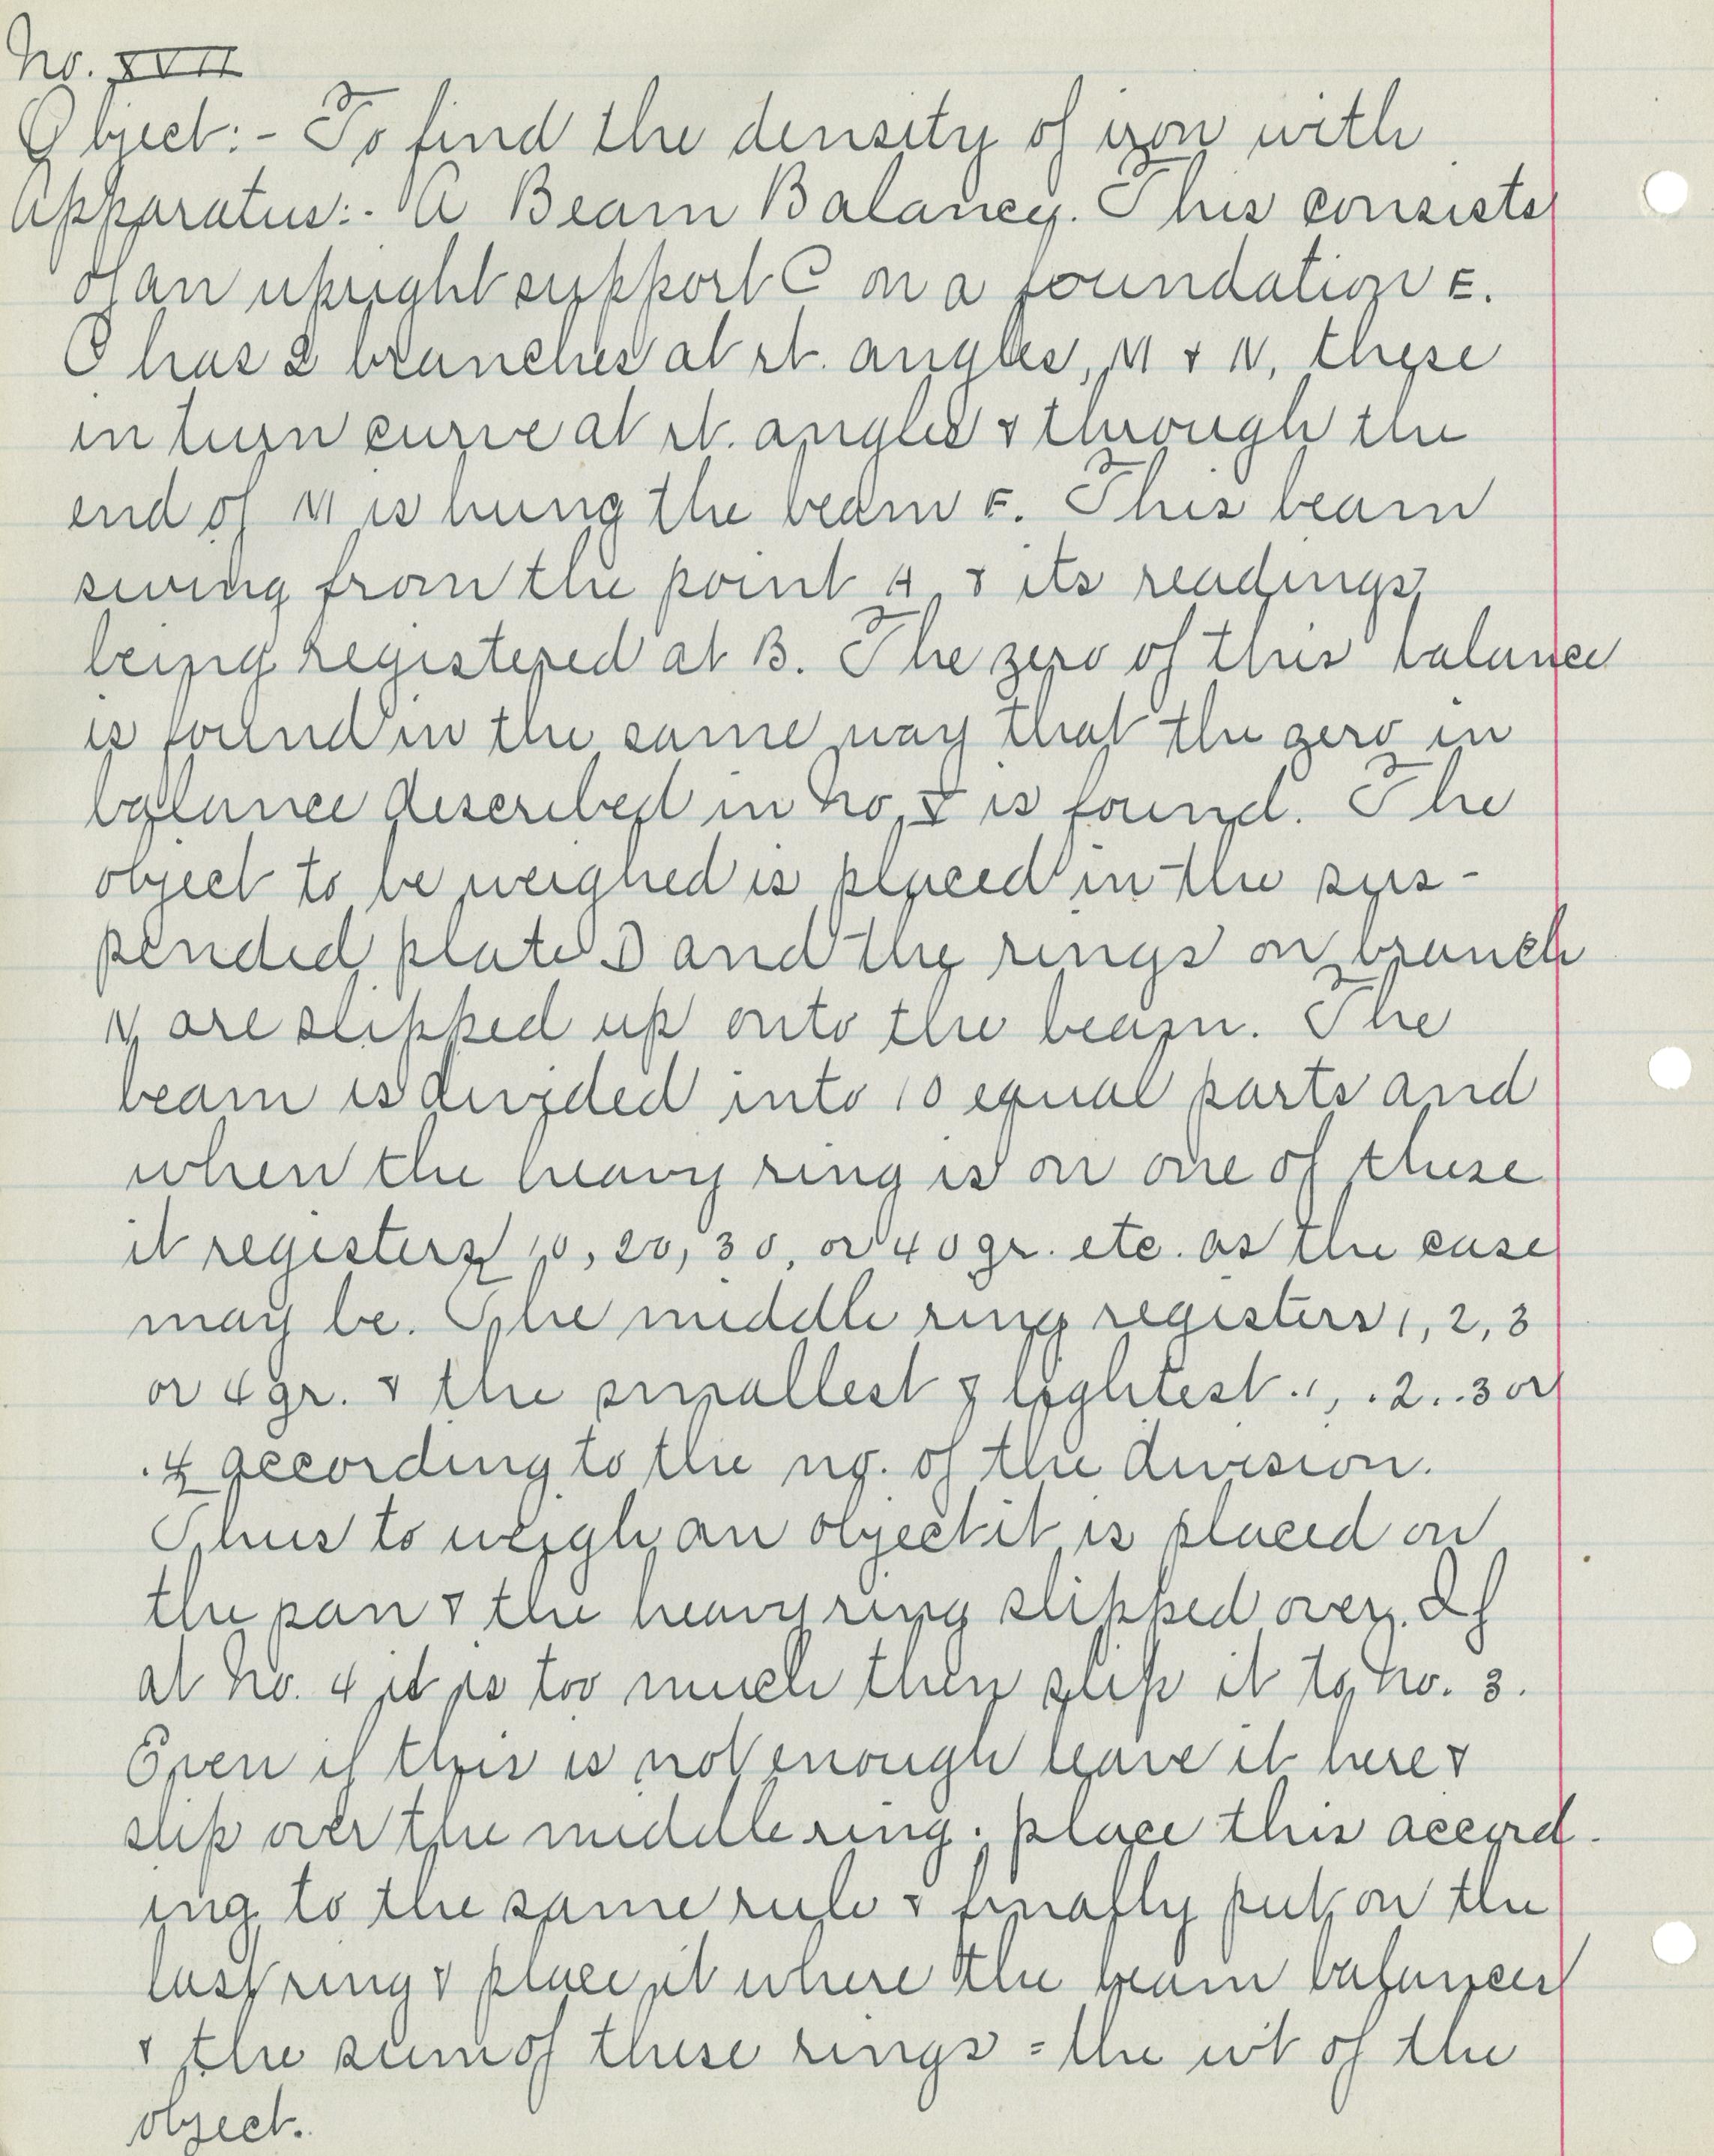 No. XVII
Object:- To find the density of iron with
Apparatus:- A Beam Balance. This consists
of an upright support C on a foundation E.
C has 2 branches at rt. angles, M & N, these
in turn curve at rt. angles & through the
end of M is hung the beam F. This beam
swing from the point A & its readings
being registered at B. The zero of this balance
is found in the same way that the zero in
balance described in No. I is found. The
object to be weighed is placed in the sus-
pended plate D and the rings on branch
N are slipped up onto the beam. The
beam is divided into 10 equal parts and
when the heavy ring is on one of these
it registers 10, 20, 30, or 40 gr. etc. as the case
may be. The middle ring registers 1, 2, 3
or 4 gr. & the smallest & lightest .1, .2. .3 or
.4 according to the no. of the division.
Thus to weigh an object it is placed on
the pan & the heavy ring slipped over. If
at No. 4 it is too much then slip it to No. 3.
Even if this is not enough leave it here &
slip over the middle ring; place this accord-
ing to the same rule & finally put on the
last ring & place it where the beam balances
& the sum of these rings = the wt of the
object.